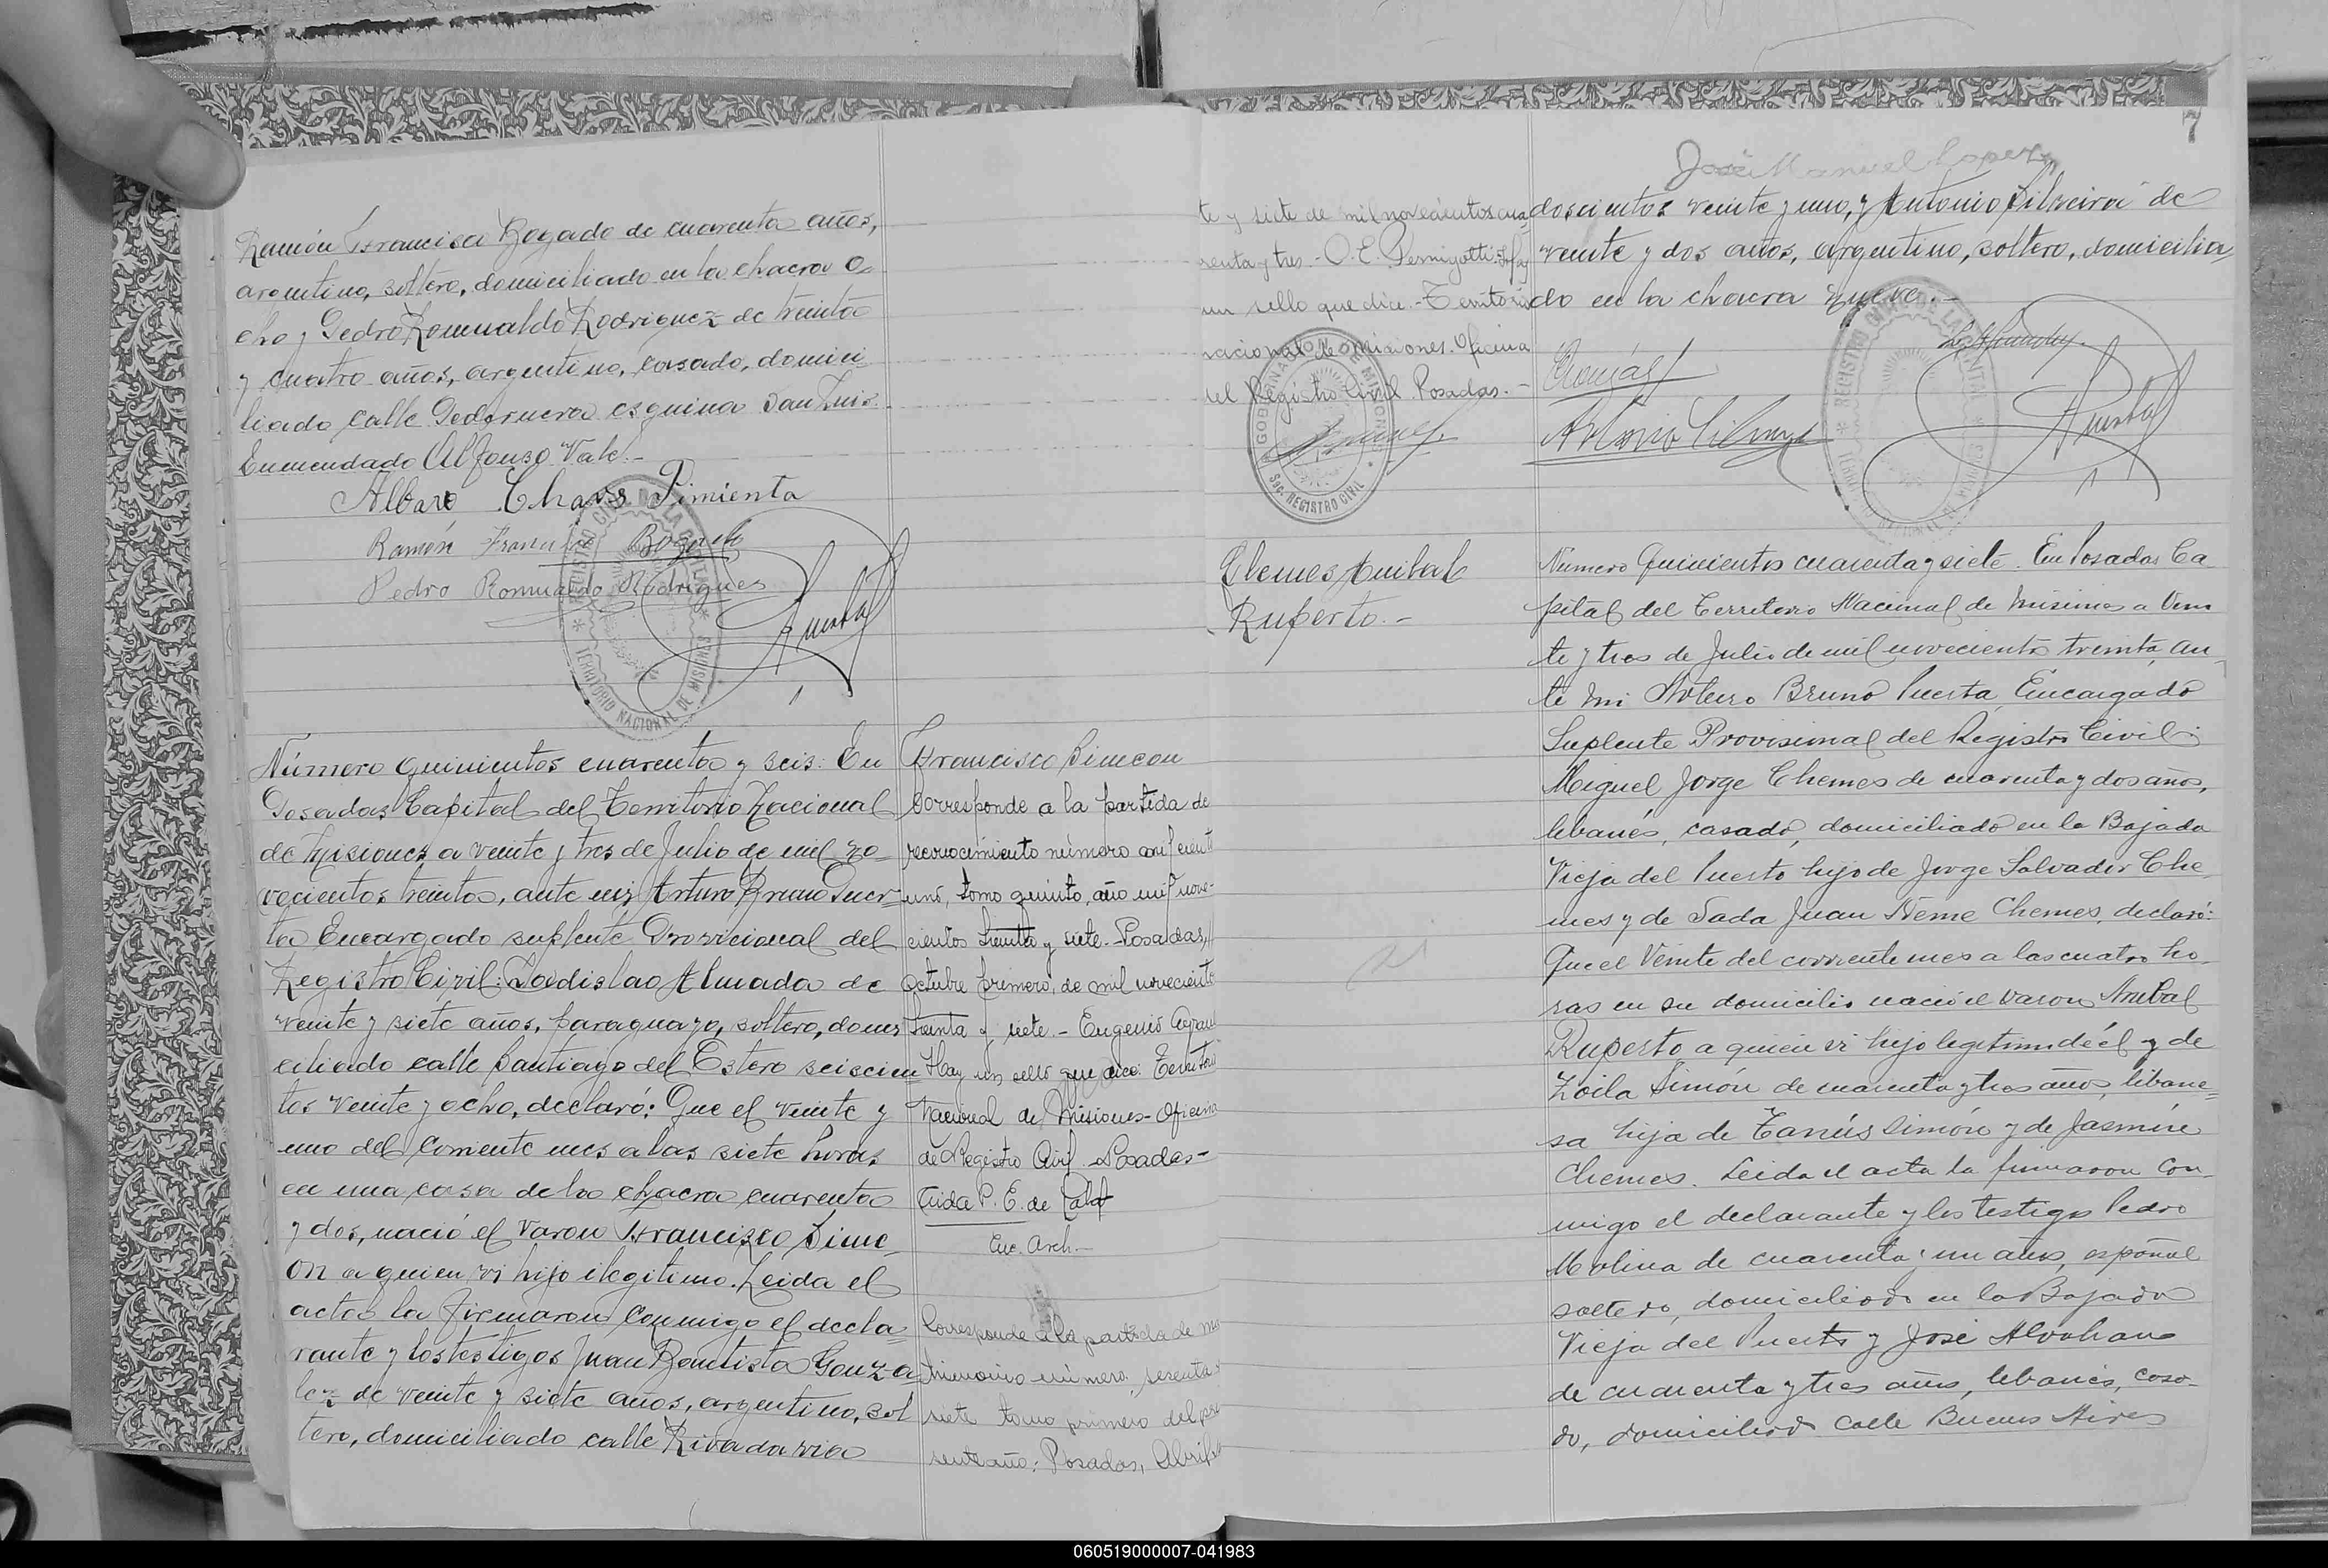 Ramón Francisco Bogado de cuarenta años,
argentino, soltero, domiciliado en la chacra o
cho y Pedro Romualdo Rodriguez de treinta
y cuatro años, argentino, casado, domici
liado calle Pedernera esquina San Luis.
Enmendado Alfonso Vale.-
Albaro Chaves Pimienta
Ramón Francisco Bogado
Pedro Romualdo Rodrigues
REGISTRO CIVIL DE LA CAPITAL
TERRITORIO NACIONAL DE MISIONES
Número quinientos cuarenta y seis: En
Posadas Capital del Territorio Nacional
de Misiones a veinte y tres de Julio de mil no-
vecientos treinta, ante mi Arturo Bruno Puer-
ta Encargado suplente Provicional del
Registro Civil: Ladislao Almada de
veinte y siete años, paraguayo, soltero, domi
ciliado calle Santiago del Estero seiscien
tos veinte y ocho, declaró: Que el veinte y
uno del corriente mes a las siete horas
en una casa de la chacra cuarenta
y dos, nació el varon Francisco Sime-
on a quien vi hijo ilegitimo. Leida el
acta la firmaron conmigo el decla-
rante y los testigos Juan Bautista Gonza-
lez de veinte y siete años, argentino, sol
tero, domiciliado calle Rivadavia
Francisco Simeon
Corresponde a la partida de
reconocimiento número mil ciento
uno, tomo quinto, año mil nove-
cientos treinta y siete.- Posadas,
octubre primero, de mil novecientos
treinta y siete.- Eugenio
Hay un sello que dice: Territorio
Nacional de Misiones- Oficina
de Registro Civil Posadas-
Aida P. E. de
Enc. Arch.-
Corresponde a la partida de ma
trimonio número, sesenta y
siete tomo primero del pre
sente año: Posadas, Abril
7
José Manuel Lopez
te y siete de mil novecientos cua
renta y tres.- O. E. Pernigotti. Hay
un sello que dice.- Territorio
nacional de Misiones. Oficina
del Registro Civil Posadas.-
GOBERNACION DE MISIONES
SEC. REGISTRO CIVIL
doscientos veinte y uno, y Antonio Silveira de
veinte y dos años, argentino, soltero, domicilia
do en la chacra nueve.-
REGISTRO CIVIL DE LA CAPITAL
TERRITORIO NACIONAL DE MISIONES
Chemes Anibal
Ruperto.-
Numero Quinientos cuarenta y siete. En Posadas Ca
pital del Territorio Nacional de Misiones a Vein
te y tres de Julio de mil novecientos treinta, an
te mi Arturo Bruno Puerta, Encargado
Suplente Provisional del Registro Civil:
Miguel Jorge Chemes de cuarenta y dos años,
libanés, casado, domiciliado en la Bajada
Vieja del Puerto hijo de Jorge Salvador Che
mes y de Sada Juan Neme Chemes, declaró:
Que el Veinte del corriente mes a las cuatro ho
ras en su domicilio nació el varon Anibal
Ruperto a quien vi hijo legitimo de él y de
Zoila Simón de cuarenta y tres años, libane=
sa hija de Tanús Simón y de Jasmíne
Chemes. Leida el acta la firmaron con
migo el declarante y los testigos Pedro
Molina de cuarenta y un años, español
soltero, domiciliado en la Bajada
Vieja del Puerto y José Alvohano
de cuarenta y tres años, libanés, casa-
do, domiciliado calle Buenos Aires
060519000007-041983